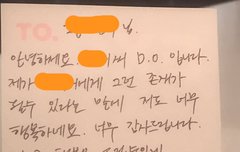 TO. 님.
안녕하세요. 씨 D.O. 입니다.
제가 에게 그런 존재가
될수 있다는 말에 저도 너무
행복하네요. 너무 감사드립니다.